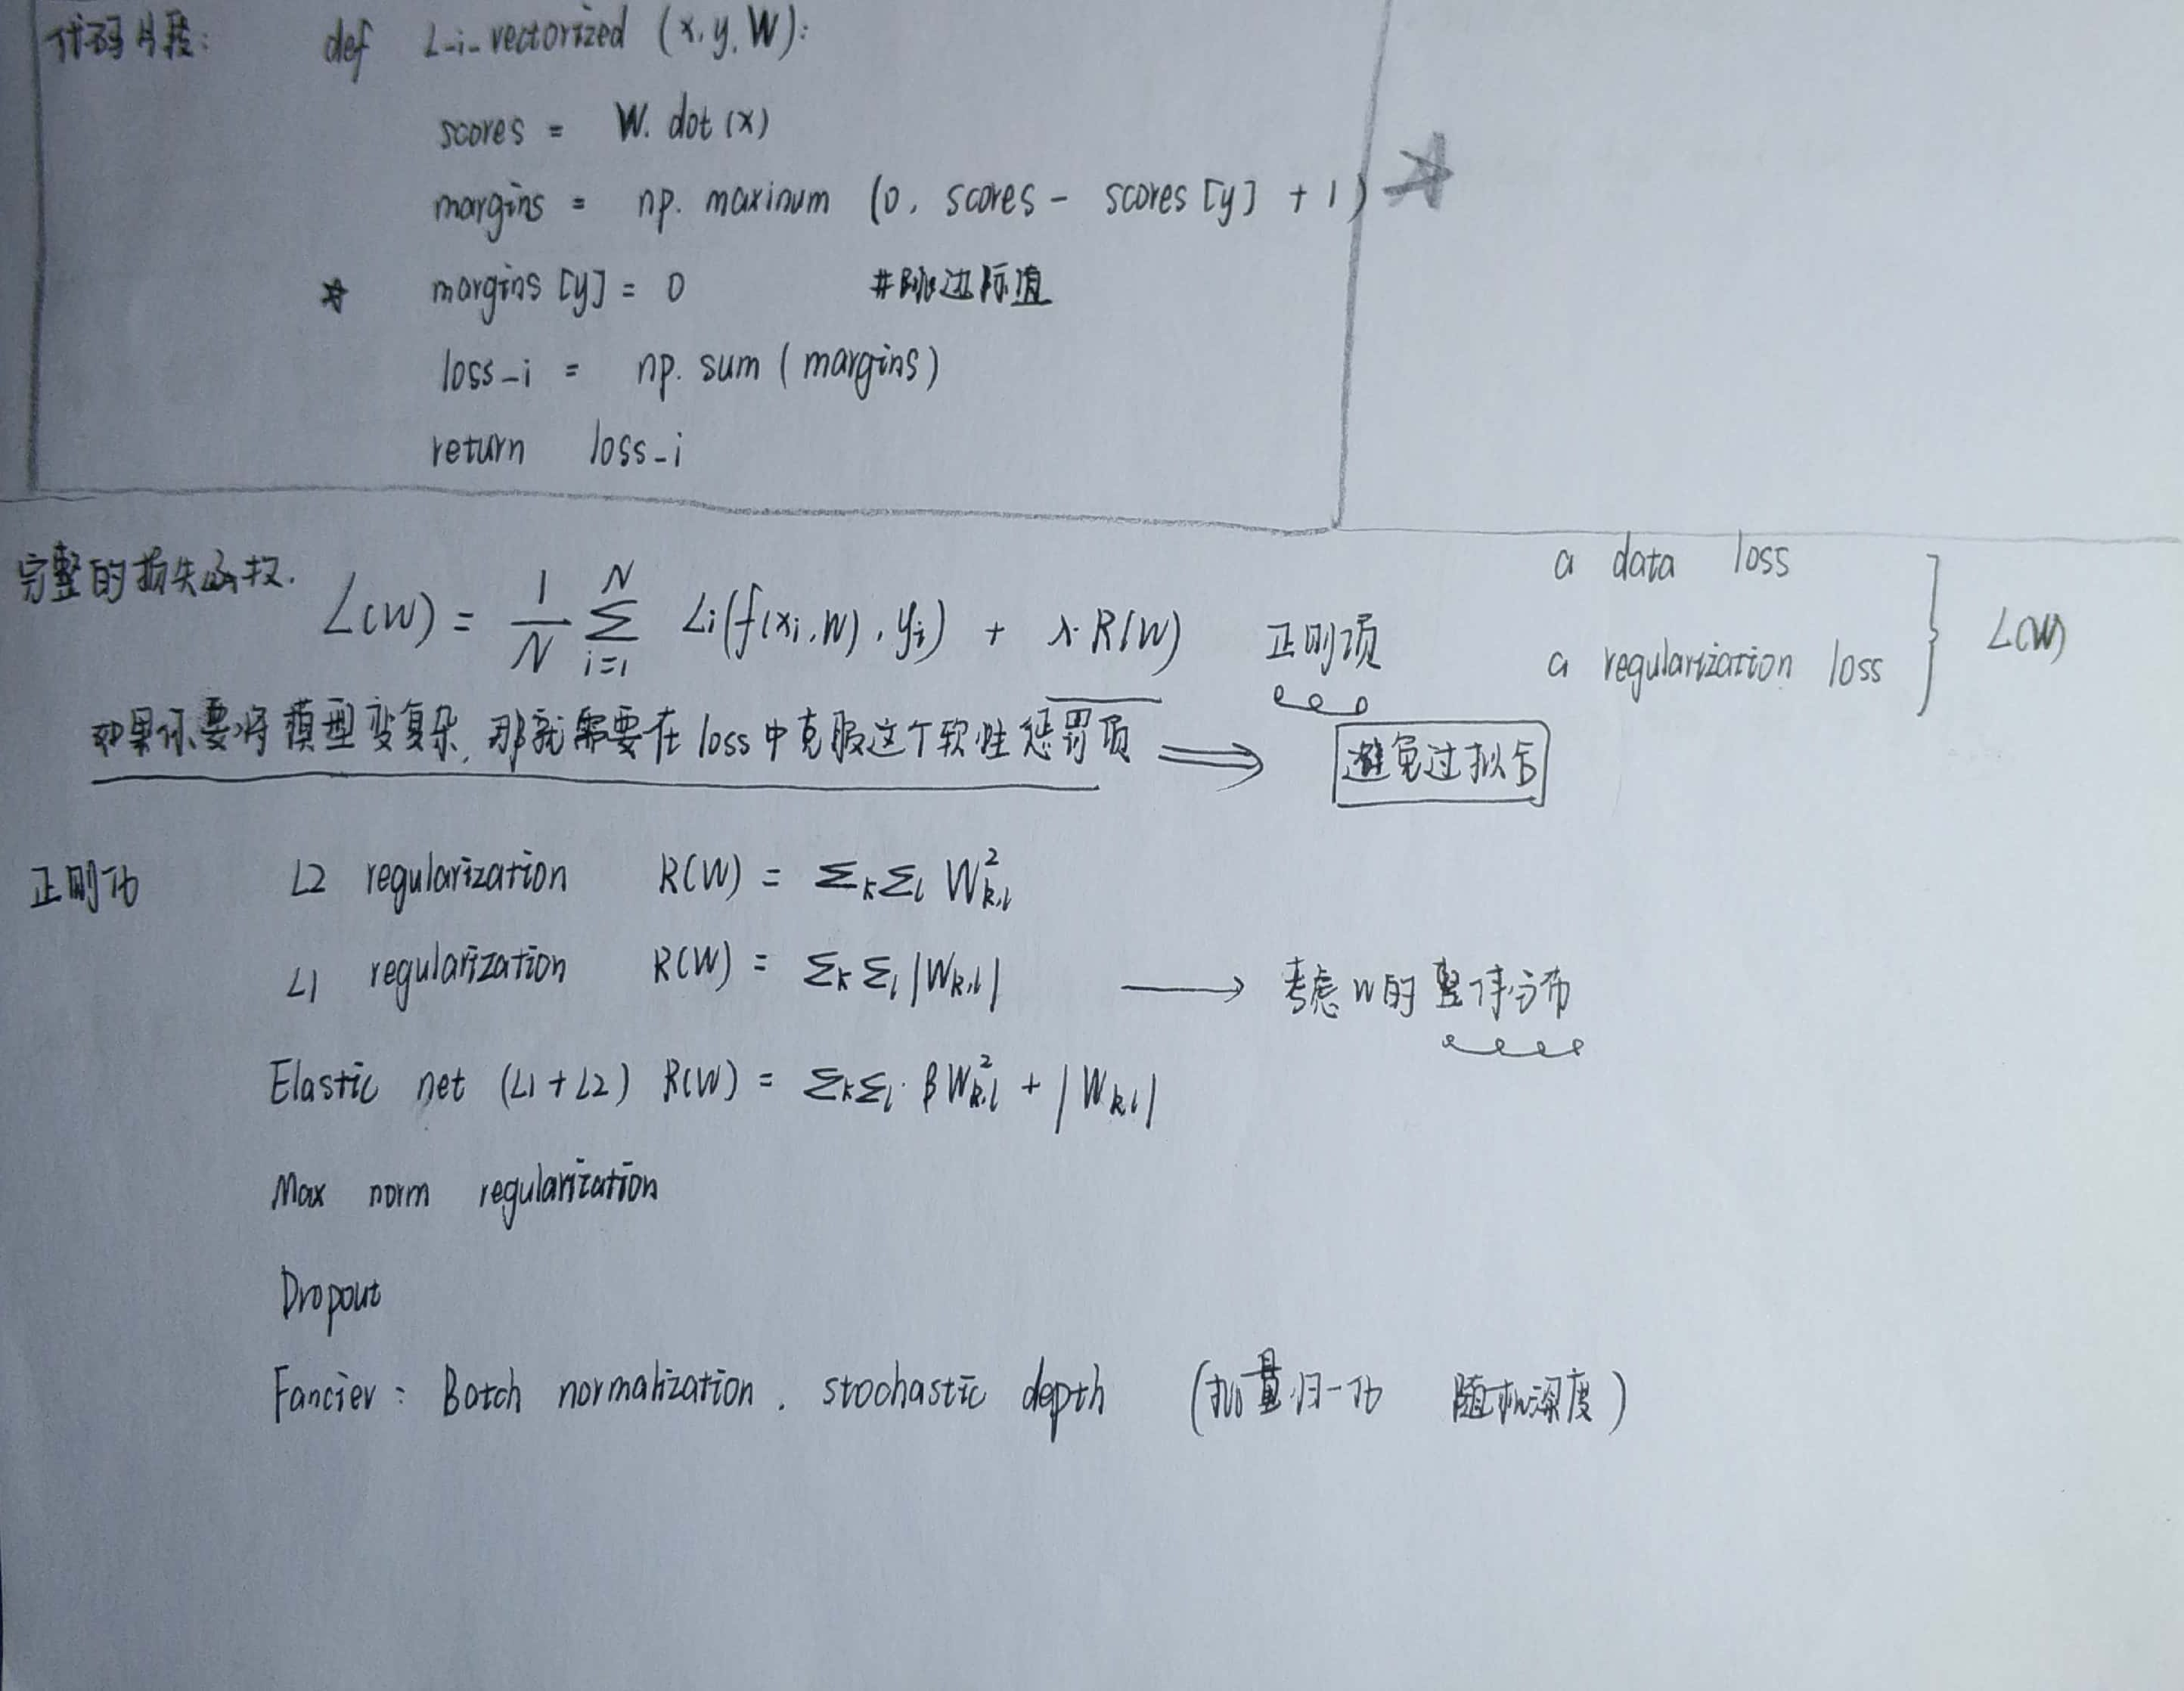 代码片段: def L_i_vectorized (x, y, W):
scores = W. dot (x)
margins = np. maximum (0, scores - scores [y] + 1)
margins [y] = 0 #跳边际值
loss_i = np. sum ( margins )
return loss_i
完整的损失函数. L(W) = 1/N ∑_{i=1}^{N} Li(f(xi, W), yi) + λ R(W) 正则项
a data loss
a regularization loss } L(W)
如果你要将模型变复杂, 那就需要在 loss 中克服这个软性惩罚项 ⟹ 避免过拟合
正则化 L2 regularization R(W) = ∑k∑l W²k,l
L1 regularization R(W) = ∑k∑l |Wk,l| → 考虑W的整体分布
Elastic net (L1+L2) R(W) = ∑k∑l βW²k,l + |Wk,l|
Max norm regularization
Dropout
Fancier: Batch normalization, stochastic depth (批量归一化 随机深度)